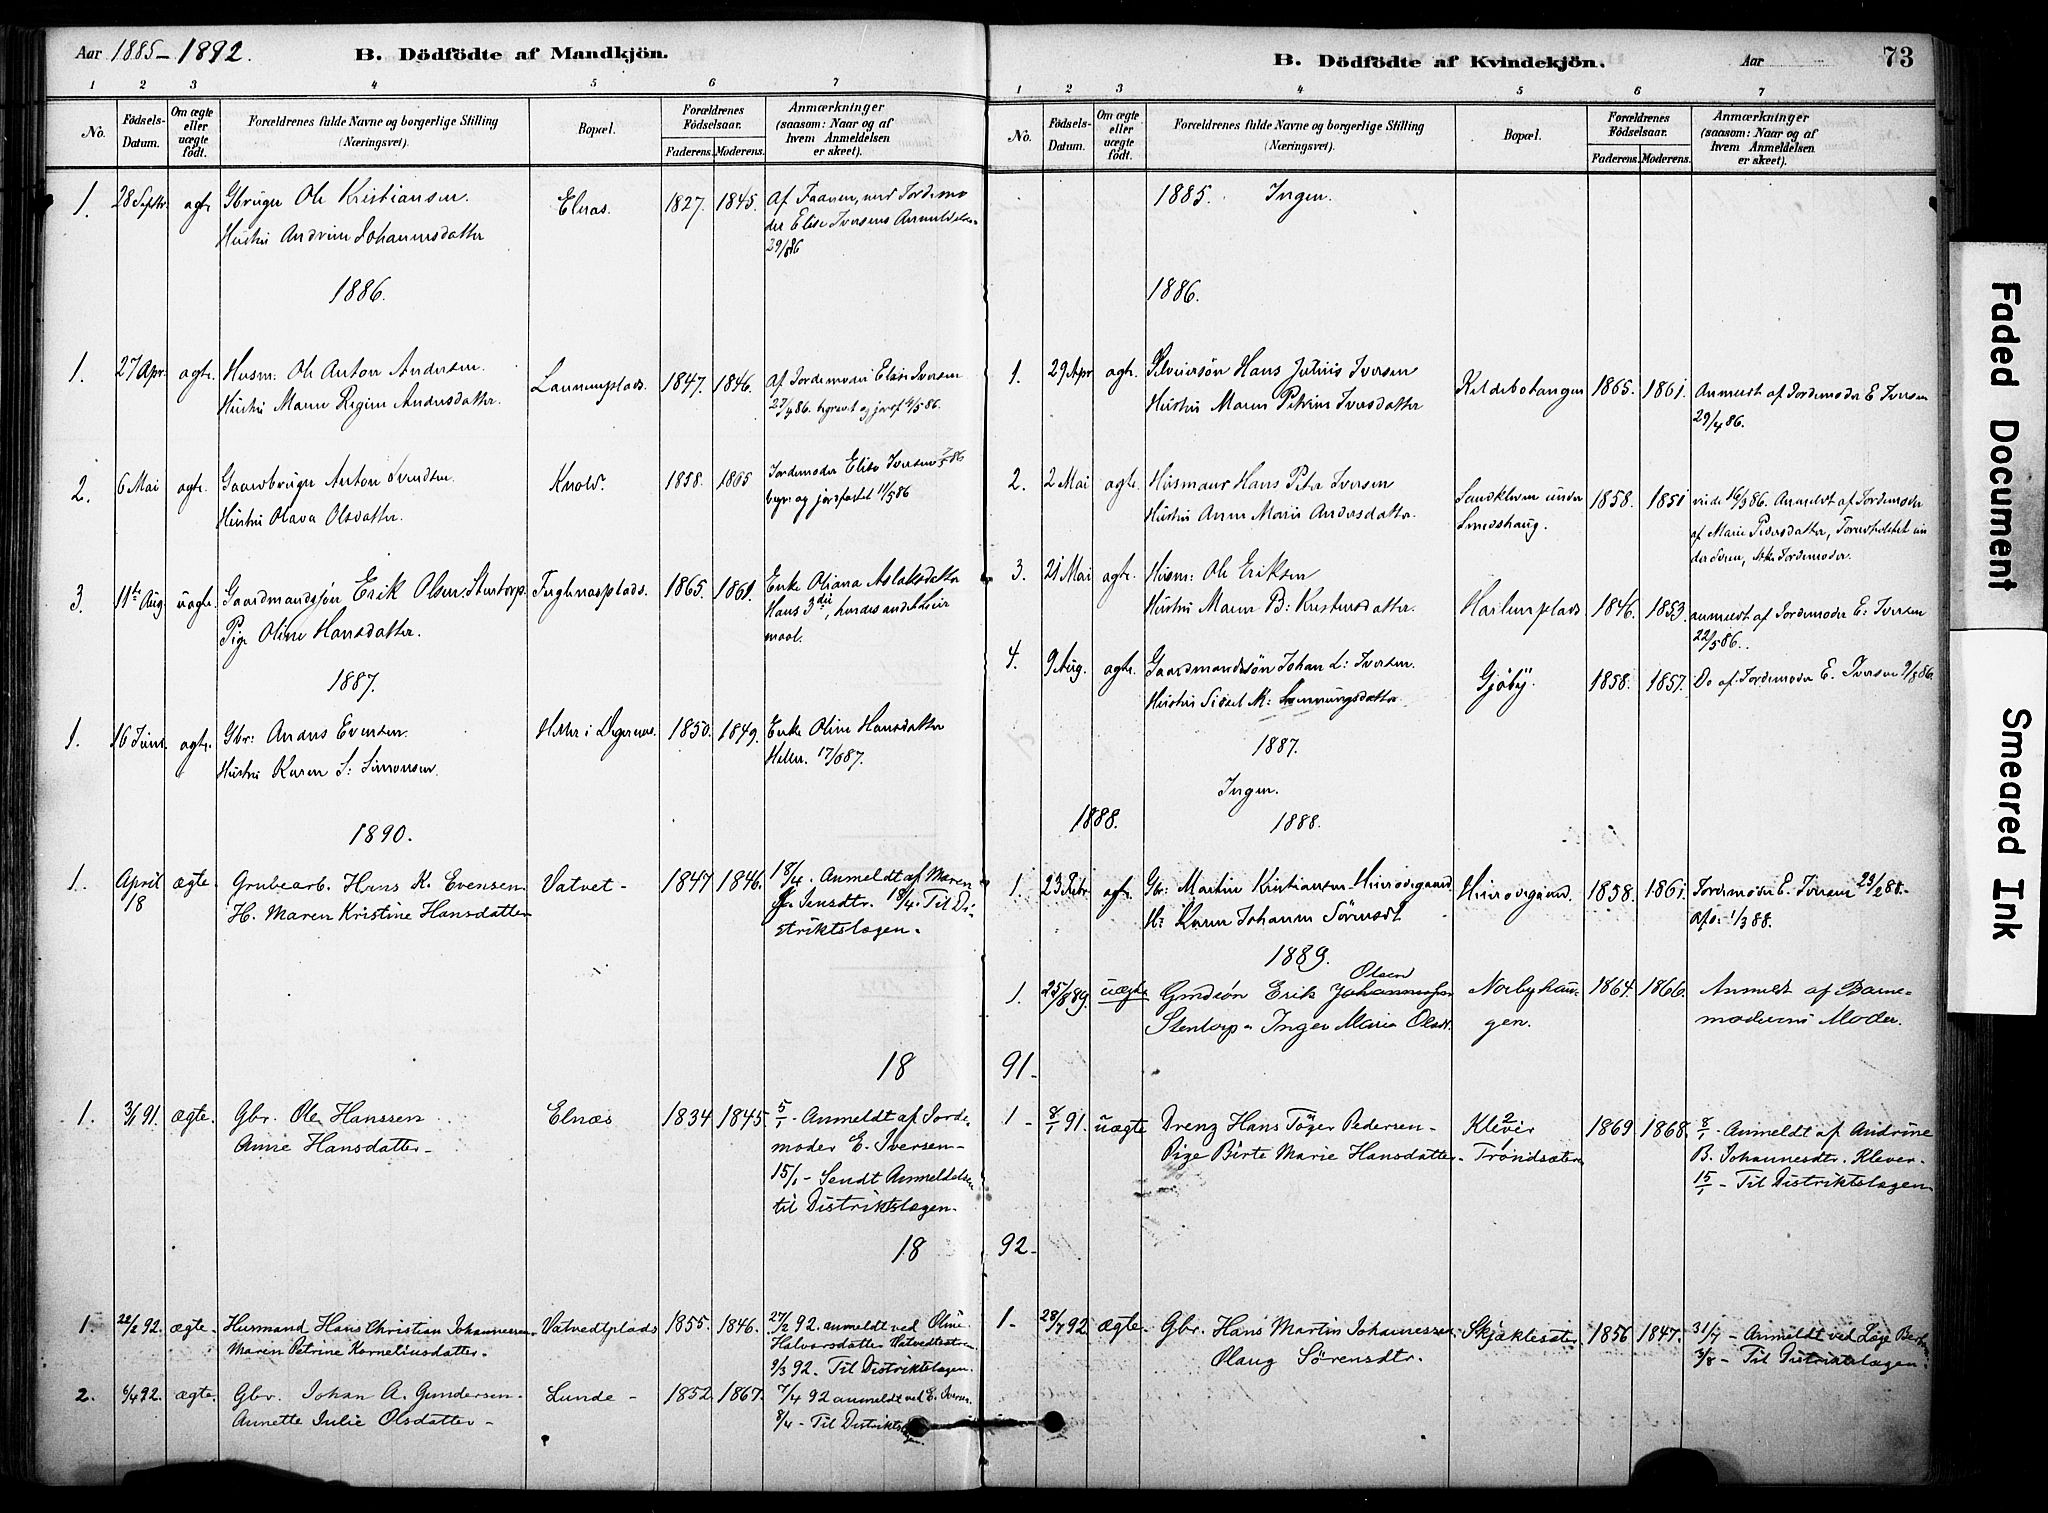 Aar 1885-1892.
B. Dödfödte af Mandkjön.
1 2 3 4 5 6 7
No.
Födsels-Datum.
Om ægte eller uægte födt.
Forældrenes fulde Navne og borgerlige Stilling (Næringsvei).
Bopæl.
Forældrenes Födselsaar.
Faderens. Moderens.
Anmærkninger (saasom: Naar og af hvem Anmeldelsen er skeet).
1. 28 Septr ægte Gbruger Ole Kristiansen. Elnæs. 1827. 1845. Af Faderen, med Jordemo
Hustru Andrine Johannesdatter
der Elise Iversens Anmeldelse
29/886
1886.
1. 27 Apr. ægte. Husm: Ole Anton Andersen. 1847. 1846. Af Jordemoder Elise Iversen
Hustru Maren Regine Andersdatter.
27/486. begravet og jordf 4/586.
2. 6 Mai ægte. Gaardbruger Anton Svendsen. Knold. 1858. 1865 Jordemoder Elise Iversen 7/586
Hustru Olava Olsdatter.
begr: og jordfæstet 11/586
3. 11te Aug uægte. Gaardmandssøn Erik Olsen Stentorp. Fuglenæsplads. 1865. 1861. Enke Oliana Aslaksdatter
Pige Oline Hansdatter.
Hans 3die, hendes andet Leier
maal.
1887.
1. 16 Juni ægte. Gbr: Anders Evensen. Heller i Degernæs. 1850. 1849. Enke Oline Hansdatter
Hustru Karen S: Simonsen.
Heller. 17/687.
1890.
1. April 18 ægte. Grubearb. Hans K. Evensen. Vatvet- 1847 1846. 18/4. Anmeldt af Maren
H. Maren Kristine Hansdatter
Jensdtr. 18/4. Til Di-
striktslægen.
18
1. 3/1 91. ægte. Gbr. Ole Hanssen Elnæs 1834 1845. 5/1 - Anmeldt af Jorde-
Anne Hansdatter-
moder E. Iversen-
15/1 - Sendt Anmeldelsen
til Distriktslægen.
18
1. 22/2 92. ægte. Husmand Hans Christian Johannesen Vatvedtplads 1855. 1846. 27/2 92. anmeldt ved Oline
Maren Petrine Korneliusdatter.
Halvorsdatter
9/3 92. Til Distriktslægen.
2. 6/4 92. ægte. Gbr. Johan A. Gundersen- Lunde- 1852. 1867. 7/4 92 anmeldt ved E. Iversen.
Annette Julie Olsdatter-
8/4 - Til Distriktslæg
B. Dödfödte af Kvindekjön.
Aar
73
1 2 3 4 5 6 7
No.
Födsels-Datum.
Om ægte eller uægte födt.
Forældrenes fulde Navne og borgerlige Stilling (Næringsvei).
Bopæl.
Forældrenes Födselsaar.
Faderens. Moderens.
Anmærkninger (saasom: Naar og af hvem Anmeldelsen er skeet).
1885. Ingen.
1886.
1. 29 Apr ægte. Selveiersøn Hans Julius Iversen Keldebotangen 1865. 1861. Anmeldt af Jordemoder E Iversen
Hustru Maren Petrine Iversdatter
29/486.
2. 2 Mai ægte. Husmand Hans Peter Iversen Sandkleven under 1858. 1851
Hustru Anne Marie Andersdatter. Smedshaug.
af Marie Pedersdatter,
der Sven, ikke Jordemoder.
3. 21 Mai ægte. Husm: Ole Eriksen
Hustru Maren B: Kristensdatter. 1846. 1853. anmeldt af Jordemoder E: Iversen
22/586.
4. 9 Aug. ægte. Gaardmandssøn Johan L: Iversen. Gjøby. 1858. 1857. Do af Jordemoder E. Iversen 9/886
Hustru Sissel M: Henningsdatter.
1887.
Ingen.
1888. 1888.
1. 23 Febr ægte. Gbr: Martin Kristiansen 1858. 1861. Jordemoder E. Iversen 23/288.
H: Karen Johanne Sørensdt
1/388.
1889.
Olsen
1. 25/889. uægte Gmdsön Erik Johannessen Norbyhau- 1864. 1866. Anmeldt af Barne-
Stentorp - Inger Maria Olsdt. gen.
moderens Moder.
91-
1- 8/1 91. uægte Dreng Hans Töger Pedersen- Klever 2 1869 1868. 8/1 - Anmeldt af Andrine
Pige Birte Marie Hansdatter- Tröndsæter 1
B. Johannesdtr. Klever-
15/1 - Til Distriktslægen
92-
1- 28/7 92 ægte- Gbr. Hans Martin Johanessen Skjæklesæter 1856 1847. 31/7 - Anmeldt ved Læge
Olaug Sörensdtr.
3/8 - Til Distriktslægen
Faded Document
Smeared Ink